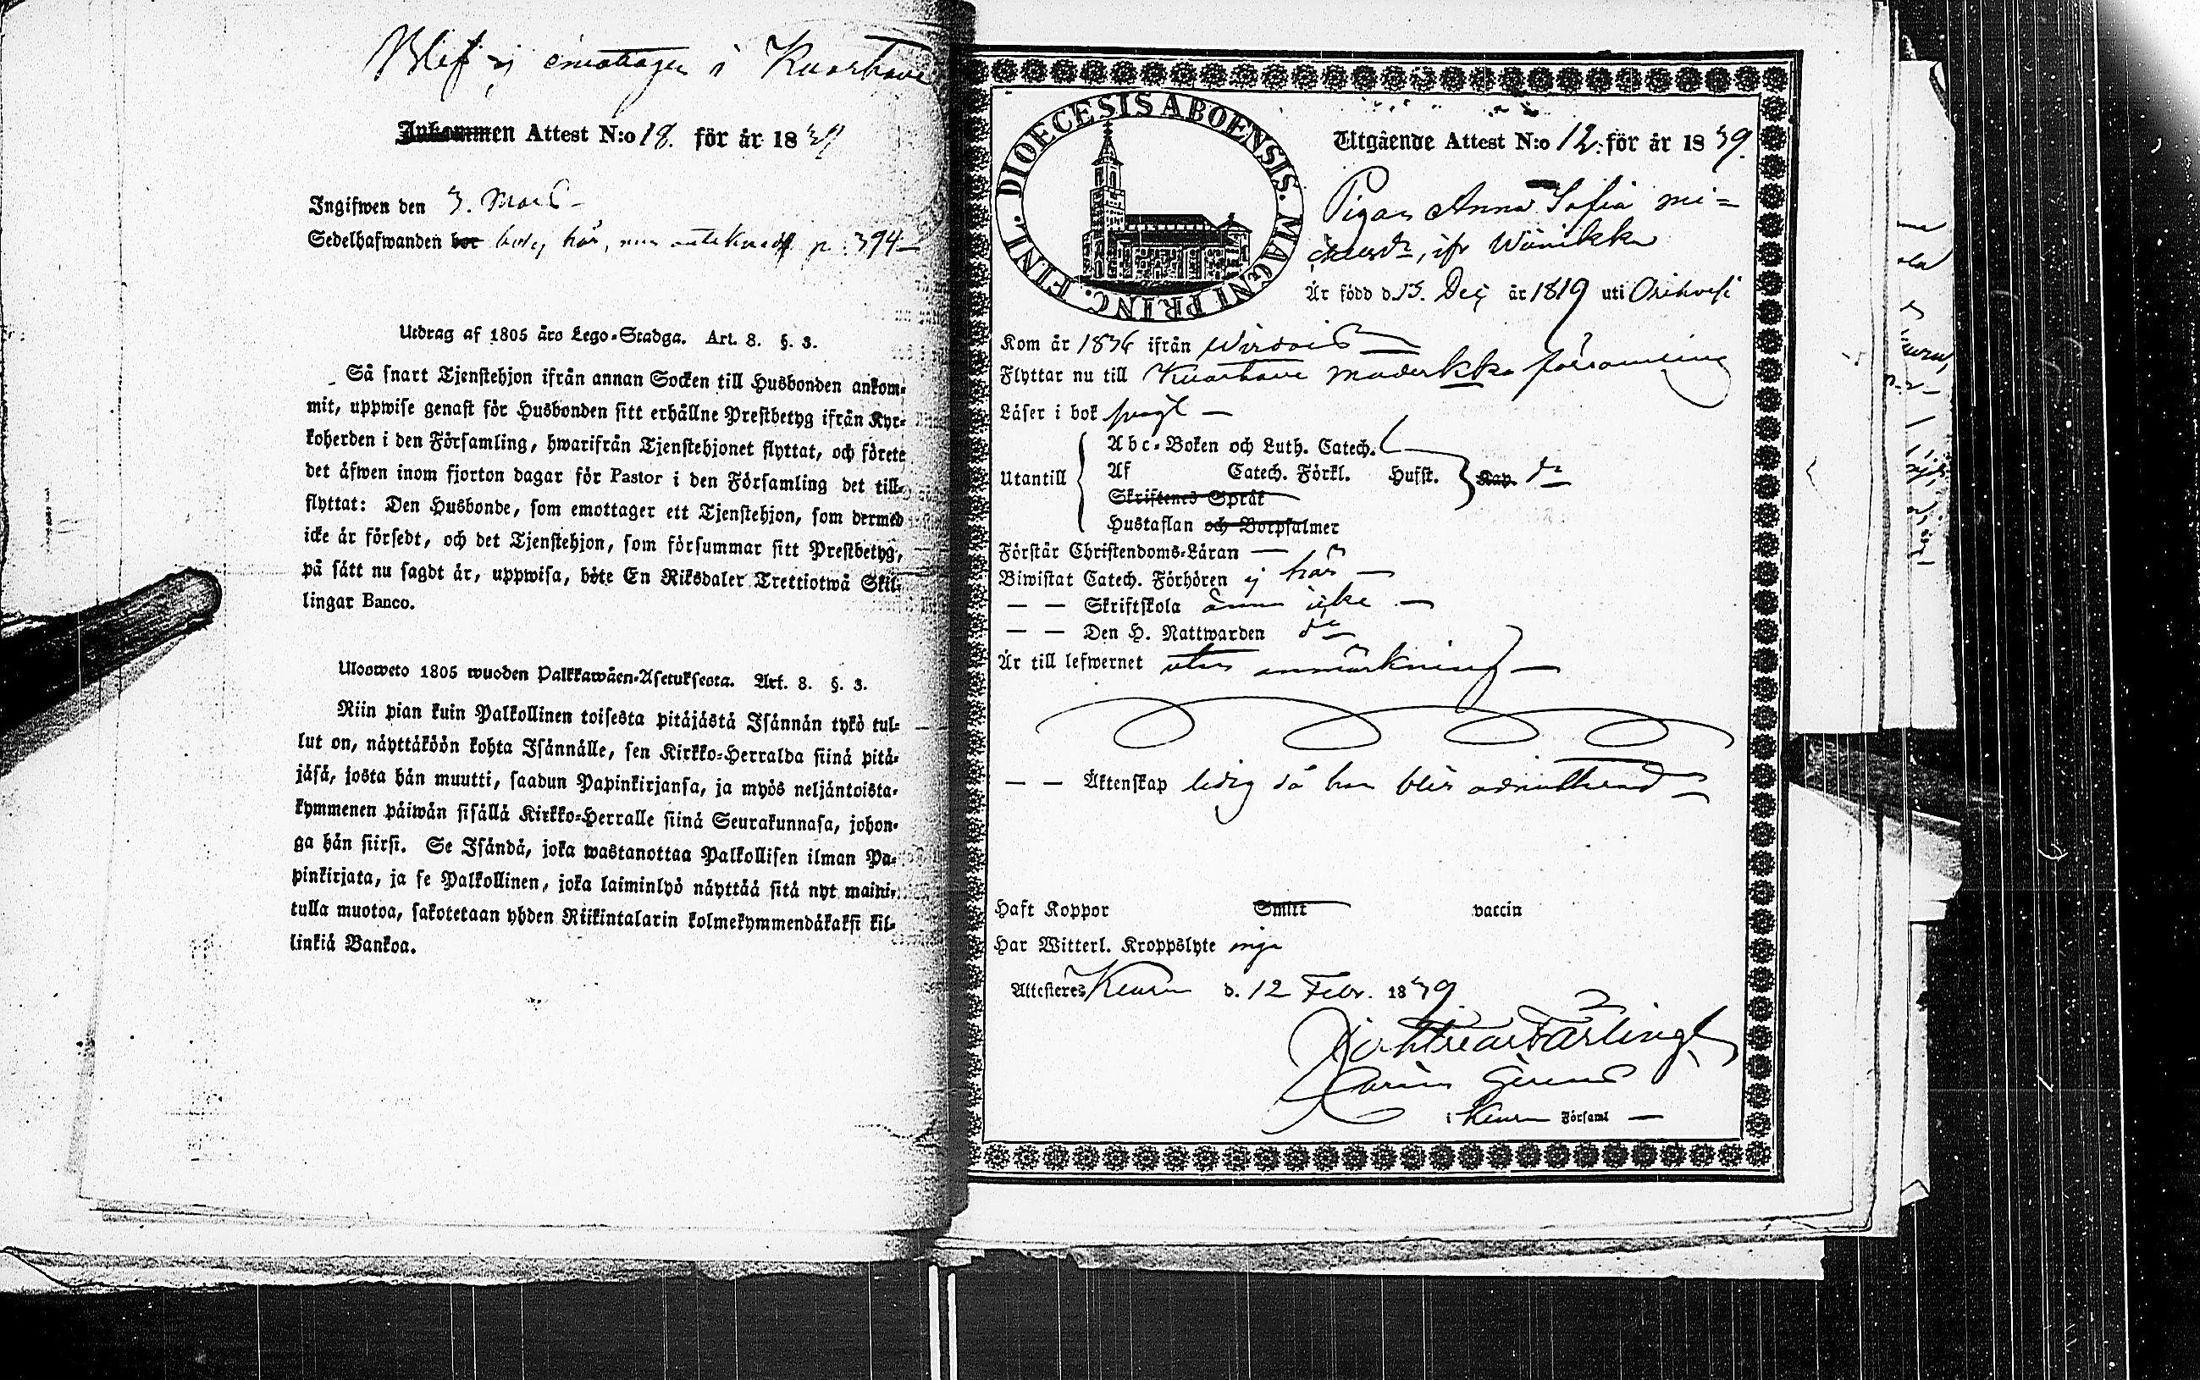 Blef ej emottagen i Kuorhane
Inkommen Attest N:o 18. för år 1839
Ingifwen den 3. Mars
Sedelhafwanden bor här, p. 394
Utdrag af 1805 års Lego-Stadga. Art. 8. §. 3.
Så snart Tjenstehjon ifrån annan Socken till Husbonden ankom-
mit, uppwise genast för Husbonden sitt erhållne Prestbetyg ifrån Kyr-
koherden i den Församling, hwarifrån Tjenstehjonet flyttat, och förete
det äfwen inom fjorton dagar för Pastor i den Församling det till-
flyttat: Den Husbonde, som emottager ett Tjenstehjon, som dermed
icke är försedt, och det Tjenstehjon, som försummar sitt Prestbetyg,
på sätt nu sagdt är, uppwisa, böte En Riksdaler Trettiotwå Skil-
lingar Banco.
Ulosweto 1805 wuoden Palkkawäen-Asetuksesta. Art. 8. §. 3.
Niin pian kuin Palkollinen toisesta pitäjästä Isännän tykö tul-
lut on, näyttäköön kohta Isännälle, sen Kirkko-Herralda siinä pitä-
jäsä, josta hän muutti, saadun Papinkirjansa, ja myös neljäntoista-
kymmenen päiwän sisällä Kirkko-Herralle siinä Seurakunnasa, johon-
ga hän siirsi. Se Isändä, joka wastanottaa Palkollisen ilman Pa-
pinkirjata, ja se Palkollinen, joka laiminlyö näyttää sitä nyt maini-
tulla muotoa, sakotetaan yhden Riikintalarin kolmekymmendäkaksi kil-
linkiä Bankoa.
DIOECESIS ABOENSIS. MAGNI PRINC. FINL.
Utgående Attest N:o 12. för år 1839.
Pigan Anna Sofia Mi-
ifr
Är född d. 15. Dec. år 1819 uti Orihvesi
Kom år 1836 ifrån Wirdois
Flyttar nu till Kuorhane moderkko församling
Läser i bok
Utantill
Abc-Boken och Luth. Catech.
Af Catech. Förkl. Hufst. Kap. do
Skriftenes Språk
Hustaflan och Botpsalmer
Förstår Christendoms-Läran —
Biwistat Catech. Förhören ej här —
— — Skriftskola ännu icke —
— — Den H. Nattwarden do
Är till lefwernet utan anmärkning —
— — Äktenskap ledig då hon blir admitterad
Haft Koppor Smitt vaccin
Har Witterl. Kroppslyte inga
Attesteres Keuru d. 12 Febr. 1839.
i Keuru Församl —